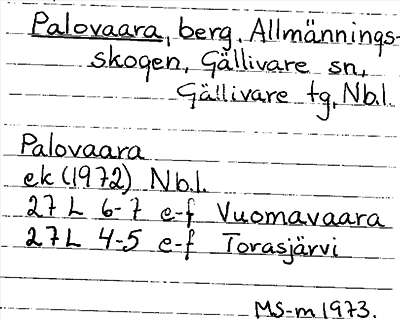 Palovaara, berg. Allmännings-
skogen, Gällivare sn,
Gällivare tg, Nb.l.
Palovaara
ek (1972) Nb.l.
27 L 6-7 e-f Vuomavaara
27 L 4-5 e-f Torasjärvi
MS-m 1973.